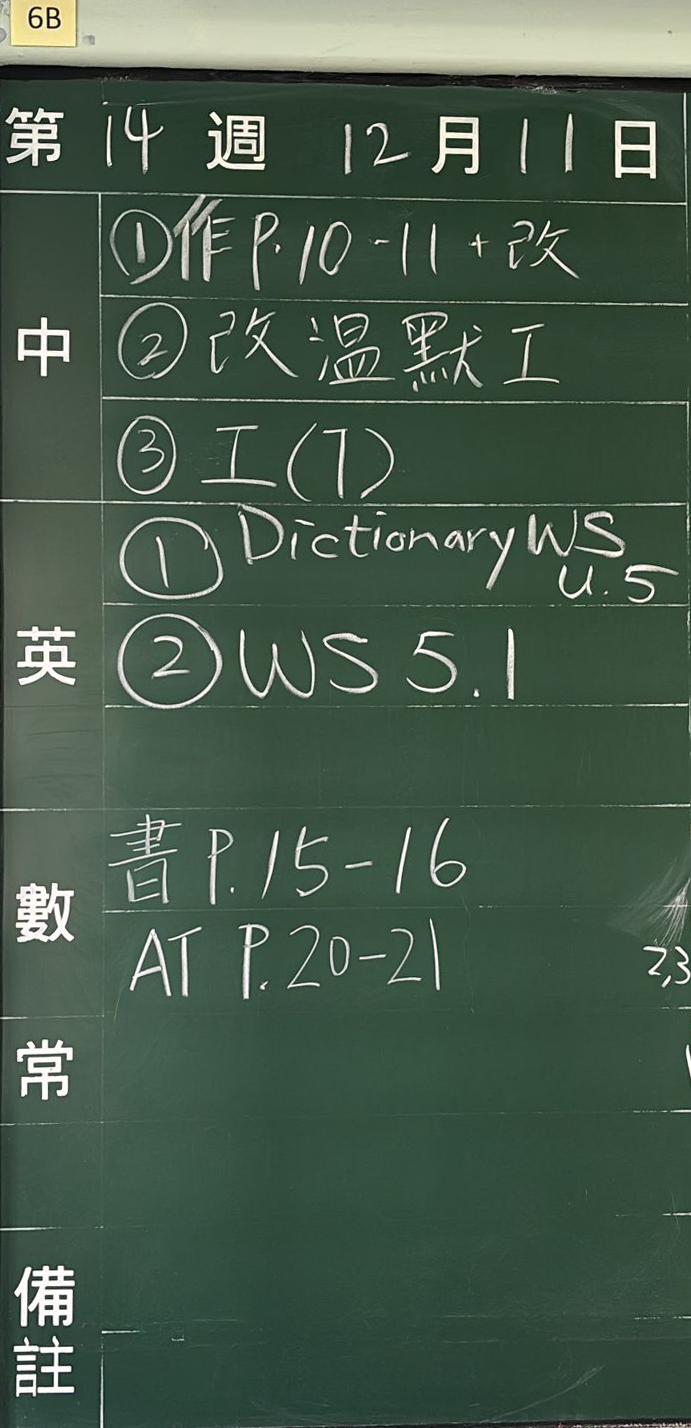 6B
第 14 週 12 月 11 日
中
①作 P.10-11 + 改
②改溫默工
③工(7)
英
① Dictionary WS
u.5
② WS 5.1
數
書 P.15-16
AT P.20-21
2,3
常
備註